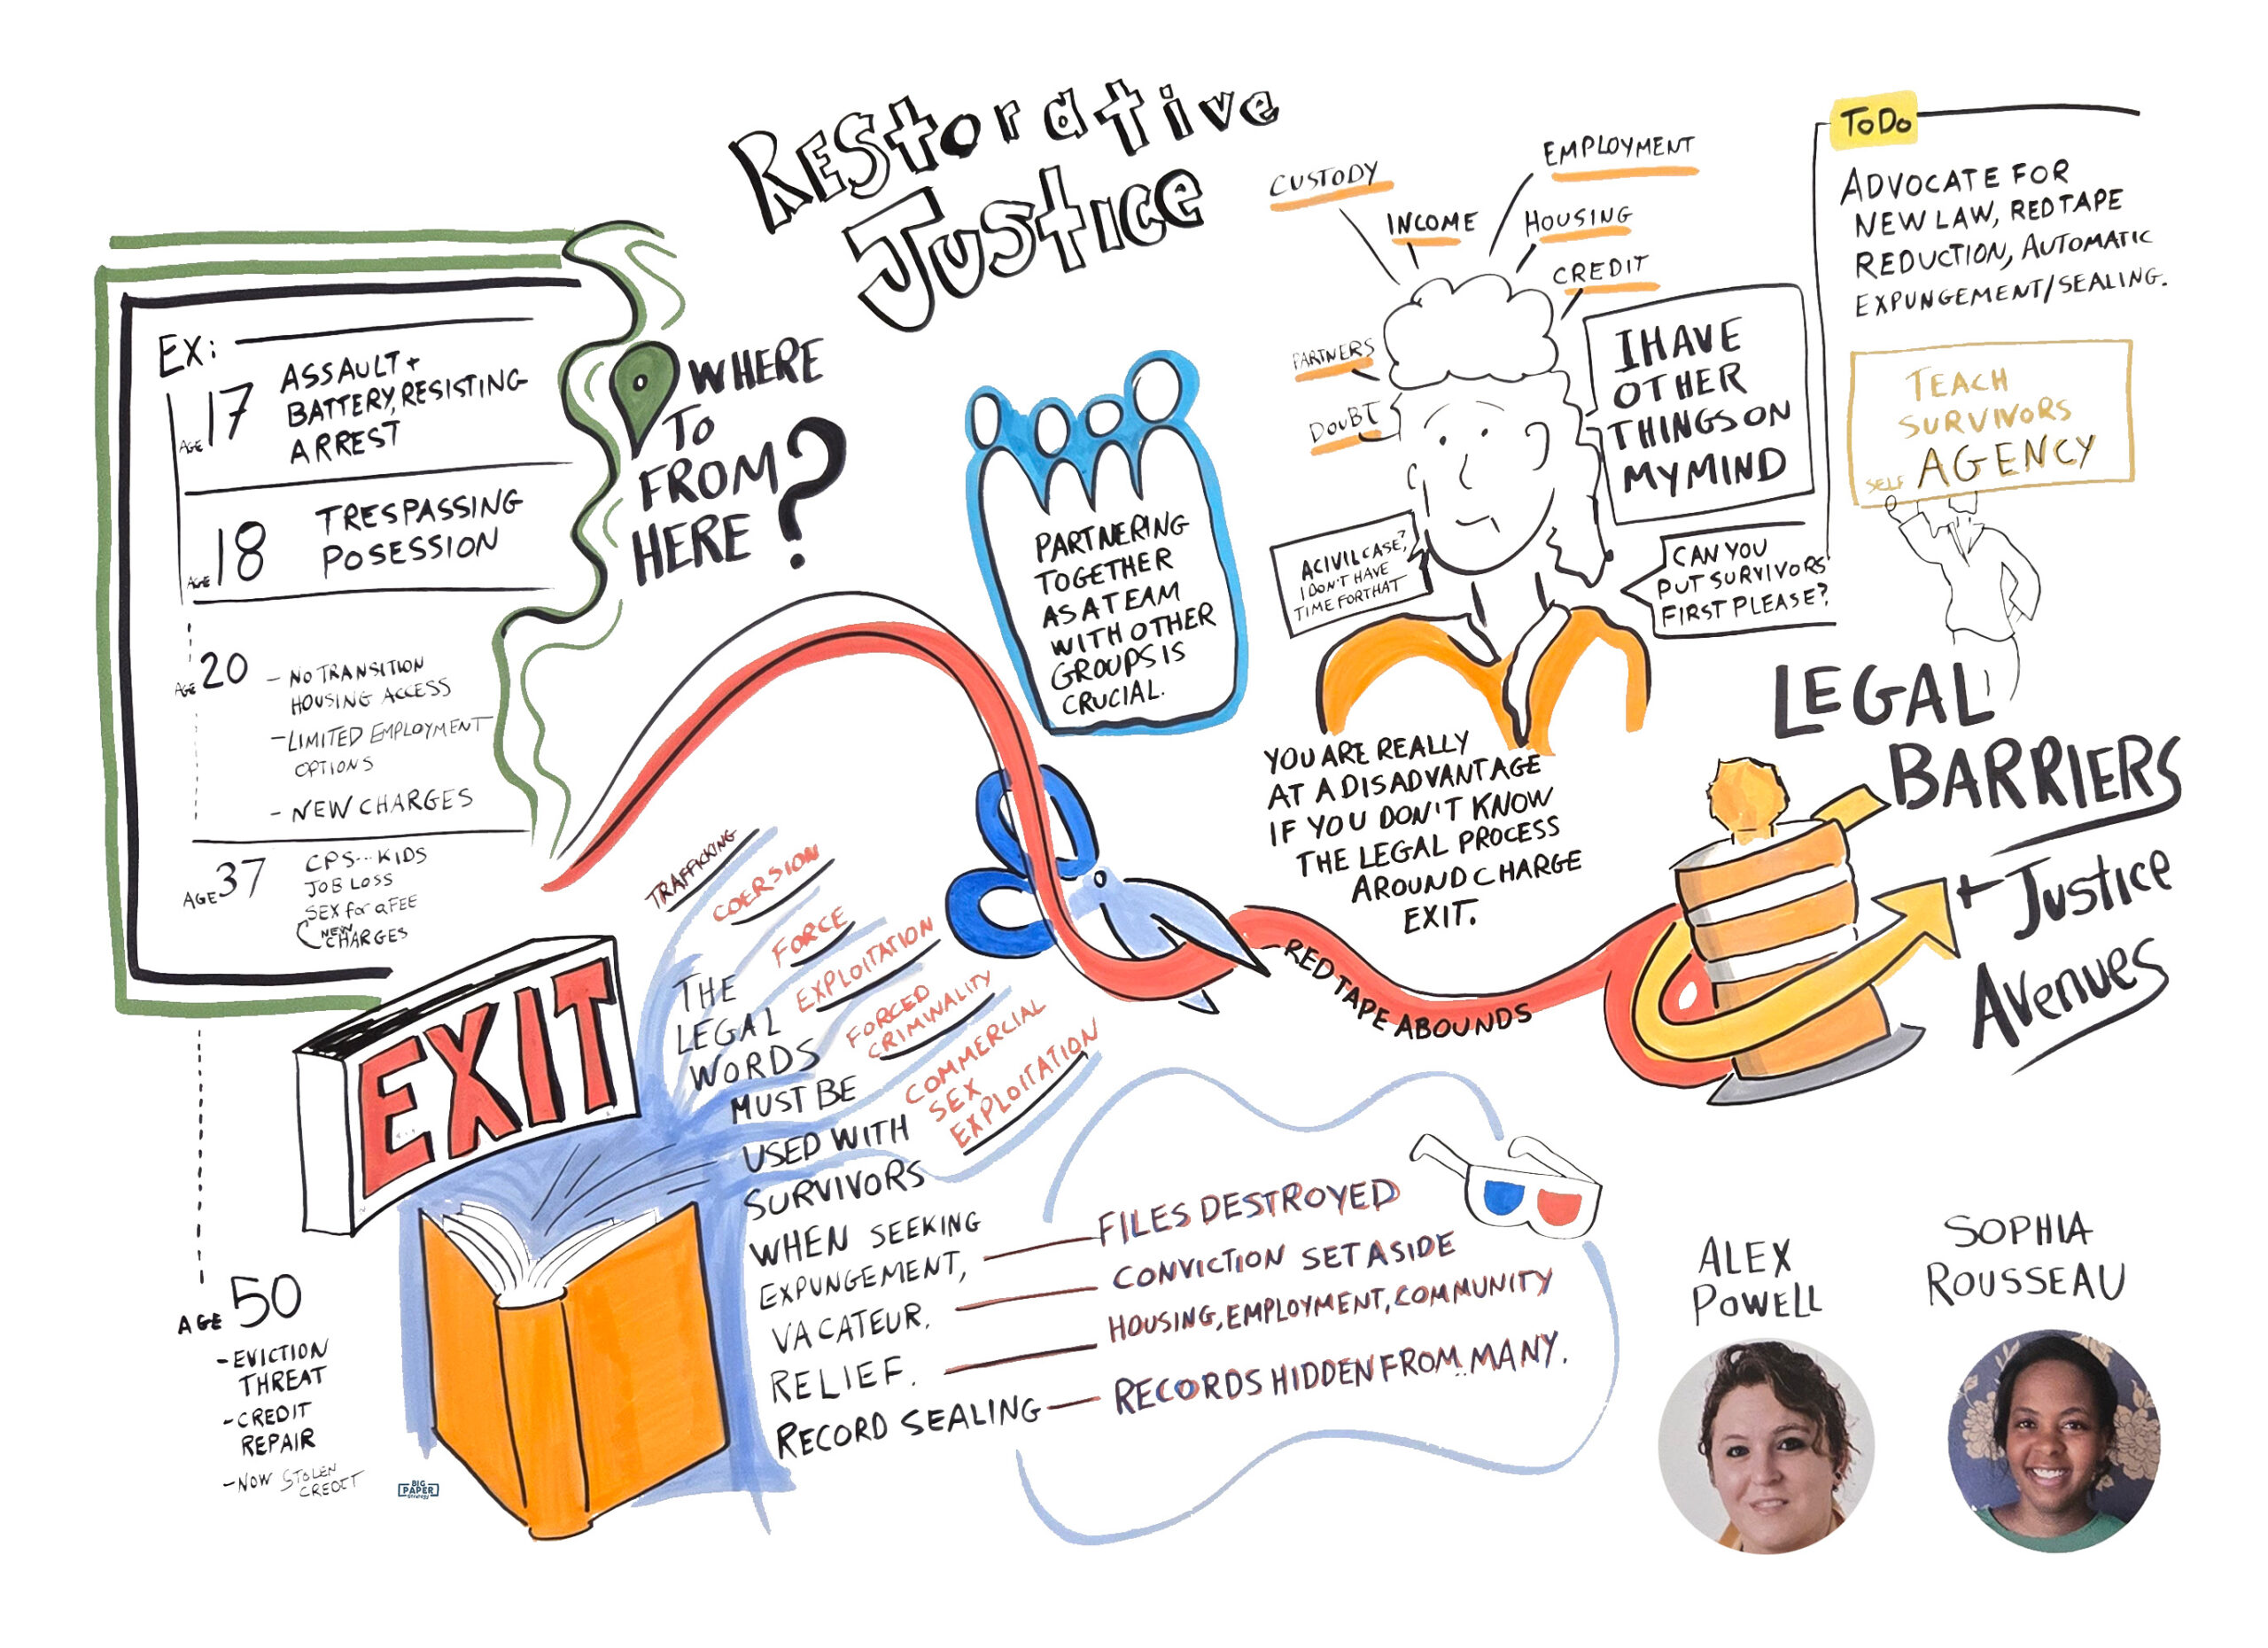 Restorative
Justice
EX:
AGE 17
ASSAULT +
BATTERY, RESISTING
ARREST
AGE 18
TRESPASSING
POSESSION
AGE 20
- NO TRANSITION
HOUSING ACCESS
- LIMITED EMPLOYMENT
OPTIONS
- NEW CHARGES
AGE 37
CPS... KIDS
JOB LOSS
SEX for a FEE
NEW
CHARGES
AGE 50
- EVICTION
THREAT
- CREDIT
REPAIR
- NOW STOLEN
CREDIT
WHERE
TO
FROM
HERE?
EXIT
THE
LEGAL
WORDS
MUST BE
USED WITH
SURVIVORS
WHEN SEEKING
EXPUNGEMENT,
VACATEUR,
RELIEF.
RECORD SEALING
TRAFFICKING
COERSION
FORCE
EXPLOITATION
FORCED
CRIMINALITY
COMMERCIAL
SEX
EXPLOITATION
FILES DESTROYED
CONVICTION SET ASIDE
HOUSING, EMPLOYMENT, COMMUNITY
RECORDS HIDDEN FROM MANY.
BIG
PAPER
STRATEGY
PARTNERING
TOGETHER
AS A TEAM
WITH OTHER
GROUPS IS
CRUCIAL.
CUSTODY
INCOME
EMPLOYMENT
HOUSING
CREDIT
PARTNERS
DOUBT
I HAVE
OTHER
THINGS ON
MY MIND
A CIVIL CASE?
I DON'T HAVE
TIME FOR THAT
CAN YOU
PUT SURVIVORS
FIRST PLEASE?
YOU ARE REALLY
AT A DISADVANTAGE
IF YOU DON'T KNOW
THE LEGAL PROCESS
AROUND CHARGE
EXIT.
RED TAPE ABOUNDS
To Do
ADVOCATE FOR
NEW LAW, RED TAPE
REDUCTION, AUTOMATIC
EXPUNGEMENT/SEALING.
TEACH
SURVIVORS
SELF AGENCY
LEGAL
BARRIERS
+ Justice
Avenues
ALEX
POWELL
SOPHIA
ROUSSEAU